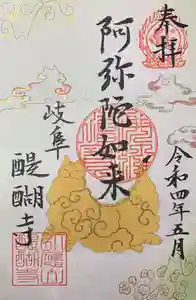 奉拝
阿弥陀如来
岐阜
醍醐寺
令和四年五月